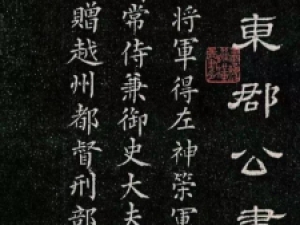 東郡公書
將軍得左神策軍
常侍兼御史大夫
贈越州都督刑部